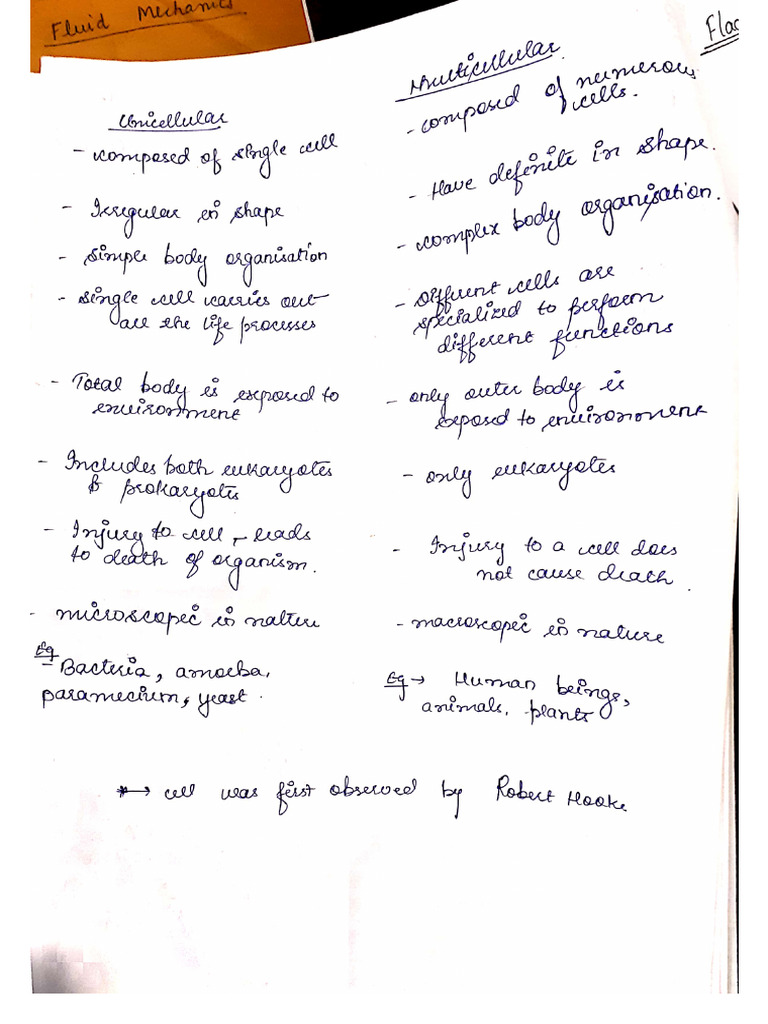 Fluid Mechanics
Flac
Unicellular
- composed of single cell
- Irregular in shape
- simple body organisation
- single cell carries out
all the life processes
- Total body is exposed to
environment
- Includes both eukaryotes
& prokaryotes
- Injury to cell, leads
to death of organism.
- microscopic in nature
Eg
- Bacteria, amoeba,
paramecium, yeast.
Multicellular
- composed of numerous
cells.
- Have definite in shape.
- complex body organisation.
- Different cells are
specialized to perform
different functions
- only outer body is
exposed to environment
- only eukaryotes
- Injury to a cell does
not cause death.
- macroscopic in nature
Eg → Human beings,
animals, plants
*→ cell was first observed by Robert Hooke